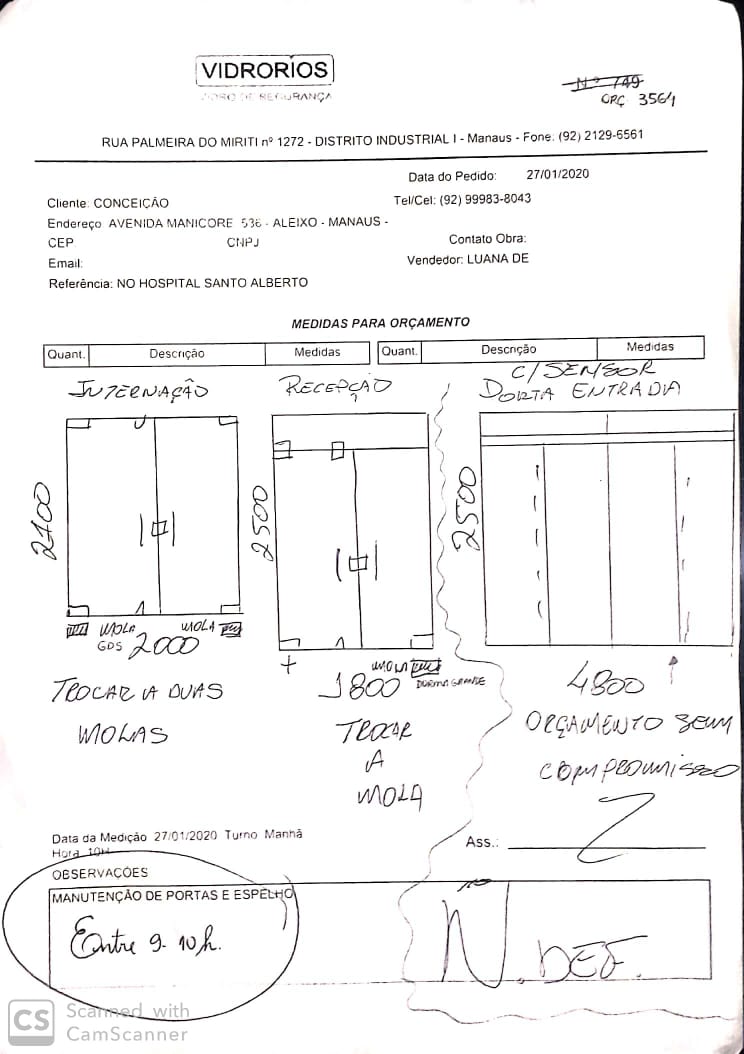 VIDRORIOS
VIDRO DE SEGURANÇA
Nº 749
ORÇ 3564
RUA PALMEIRA DO MIRITI nº 1272 - DISTRITO INDUSTRIAL I - Manaus - Fone: (92) 2129-6561
Data do Pedido: 27/01/2020
Cliente: CONCEIÇÃO
Tel/Cel: (92) 99983-8043
Endereço AVENIDA MANICORE 536 - ALEIXO - MANAUS -
CEP CNPJ
Contato Obra:
Email:
Vendedor: LUANA DE
Referência: NO HOSPITAL SANTO ALBERTO
MEDIDAS PARA ORÇAMENTO
Quant. Descrição Medidas Quant. Descrição Medidas
INTERNAÇÃO
RECEPÇÃO
C/SENSOR
PORTA ENTRADA
2100
2500
2500
MOLA MOLA
GDS 2000
TROCAR A DUAS
MOLAS
+
MOLA
1800 DORMA GRANDE
TROCAR
A
MOLA
4800
ORÇAMENTO SEM
COMPROMISSO
Data da Medição 27/01/2020 Turno Manhã
Hora 10H
Ass.:
OBSERVAÇÕES
MANUTENÇÃO DE PORTAS E ESPELHO
Entre 9-10h.
N. DEF.
CS Scanned with
CamScanner